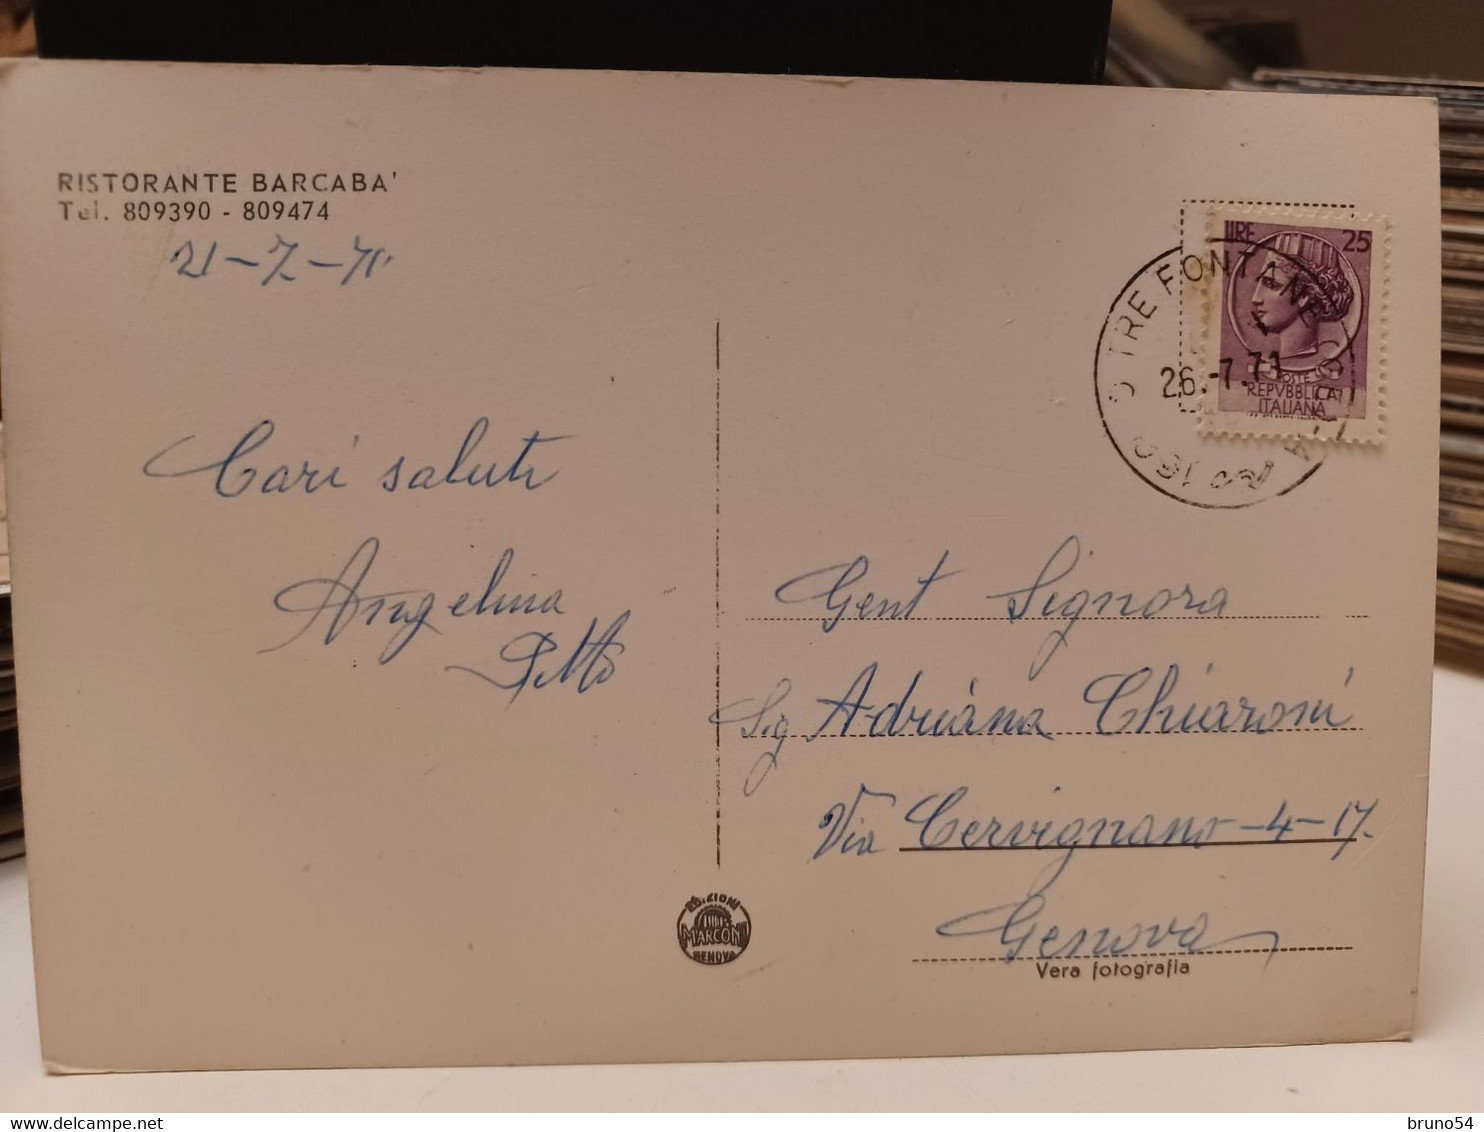 RISTORANTE BARCABA'
Tel. 809390 - 809474
21-7-71
Cari saluti
Angelina
LIRE 25
POSTE
REPVBBLICA
ITALIANA
TRE FONTANE
26.-7.71
Gent Signora
Sig Adriana Chiaroni
Via Cervignano-4-17.
Genova
Vera fotografia
EDIZIONI
MARCONI
GENOVA
bruno54